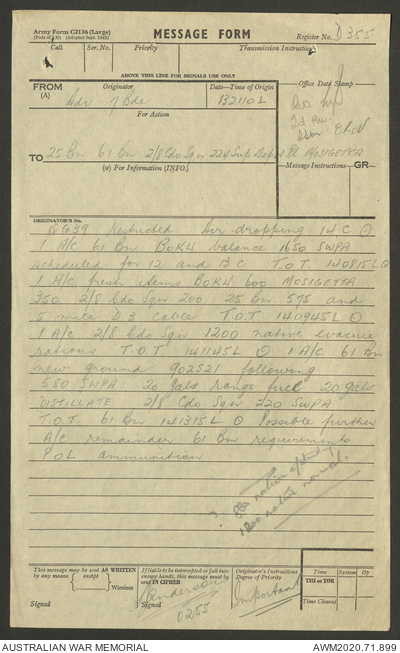 Army Form C2136 (Large)
(Pads of 50) (Adopted Sept. 1942)
MESSAGE FORM
Register No. D355
Call Ser. No. Priority Transmission Instructions
ABOVE THIS LINE FOR SIGNALS USE ONLY
FROM
(A)
Originator
Adv 7 Bde
Date—Time of Origin
132110L
Office Date Stamp
For Action
TO
25 Bn 61 Bn 2/8 Cdo Sqn MOSIGETTA
(w) For Information (INFO.)
Message Instructions GR
ORIGINATOR'S No.
QG39 restricted Air dropping 14 C O
1 A/C 61 Bn BOKU balance 1650 SWPA
scheduled for 12 and 13 C T.O.T. 140815L O
1 A/C fresh items BOKU 600 MOSIGETTA
350 2/8 Cdo Sqn 200 25 Bn 575 and
5 mile D 3 cable T.O.T. 140945L O
1 A/C 2/8 Cdo Sqn 1200 native evacuee
rations T.O.T. 141145L O 1 A/C 61 Bn
new ground 902521 following
580 SWPA 20 gals range fuel 20 gals
DISTILLATE 2/8 Cdo Sqn 220 SWPA
T.O.T. 61 Bn 141315L O Possible further
A/C remainder 61 Bn requirements
POL ammunition
?
1200 native normal.
This message may be sent AS WRITTEN
by any means { except } Wireless
Signed
If liable to be intercepted or fall into
enemy hands, this message must be
sent IN CIPHER
Signed
Anderson
0255
Originator's Instructions
Degree of Priority
Important
Time System Op
THI or TOR
Time Cleared
AUSTRALIAN WAR MEMORIAL
AWM2020.71.899